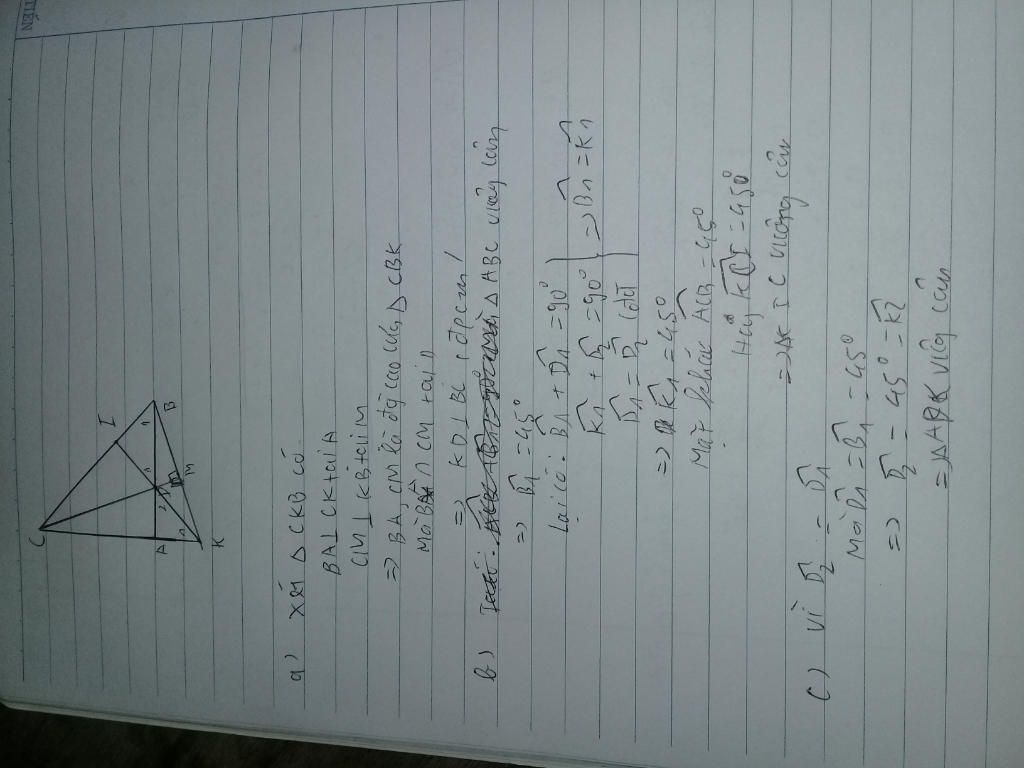 TIẾN
C
I
B
M
A
K
a) Xét △ CKB có
BA⊥ CK tại A
CM ⊥ KB tại M
=> BA, CM là đg cao của △ CBK
Mà BA ∩ CM tại D
=> KD ⊥ BC (đpcm)
b) △ ABC vuông cân
=> B̂1 = 45°
Lại có: B̂1 + D̂1 = 90°
K̂1 + D̂2 = 90° => B̂1 = K̂1
D̂1 = D̂2 (đđ)
=> K̂1 = 45°
Mặt khác ACB = 45°
Hay KCI = 45°
=> △K I C vuông cân
c) Vì D̂2 = D̂1
Mà D̂1 = B̂1 = 45°
=> D̂2 = 45° = K̂2
=> △ADK vuông cân